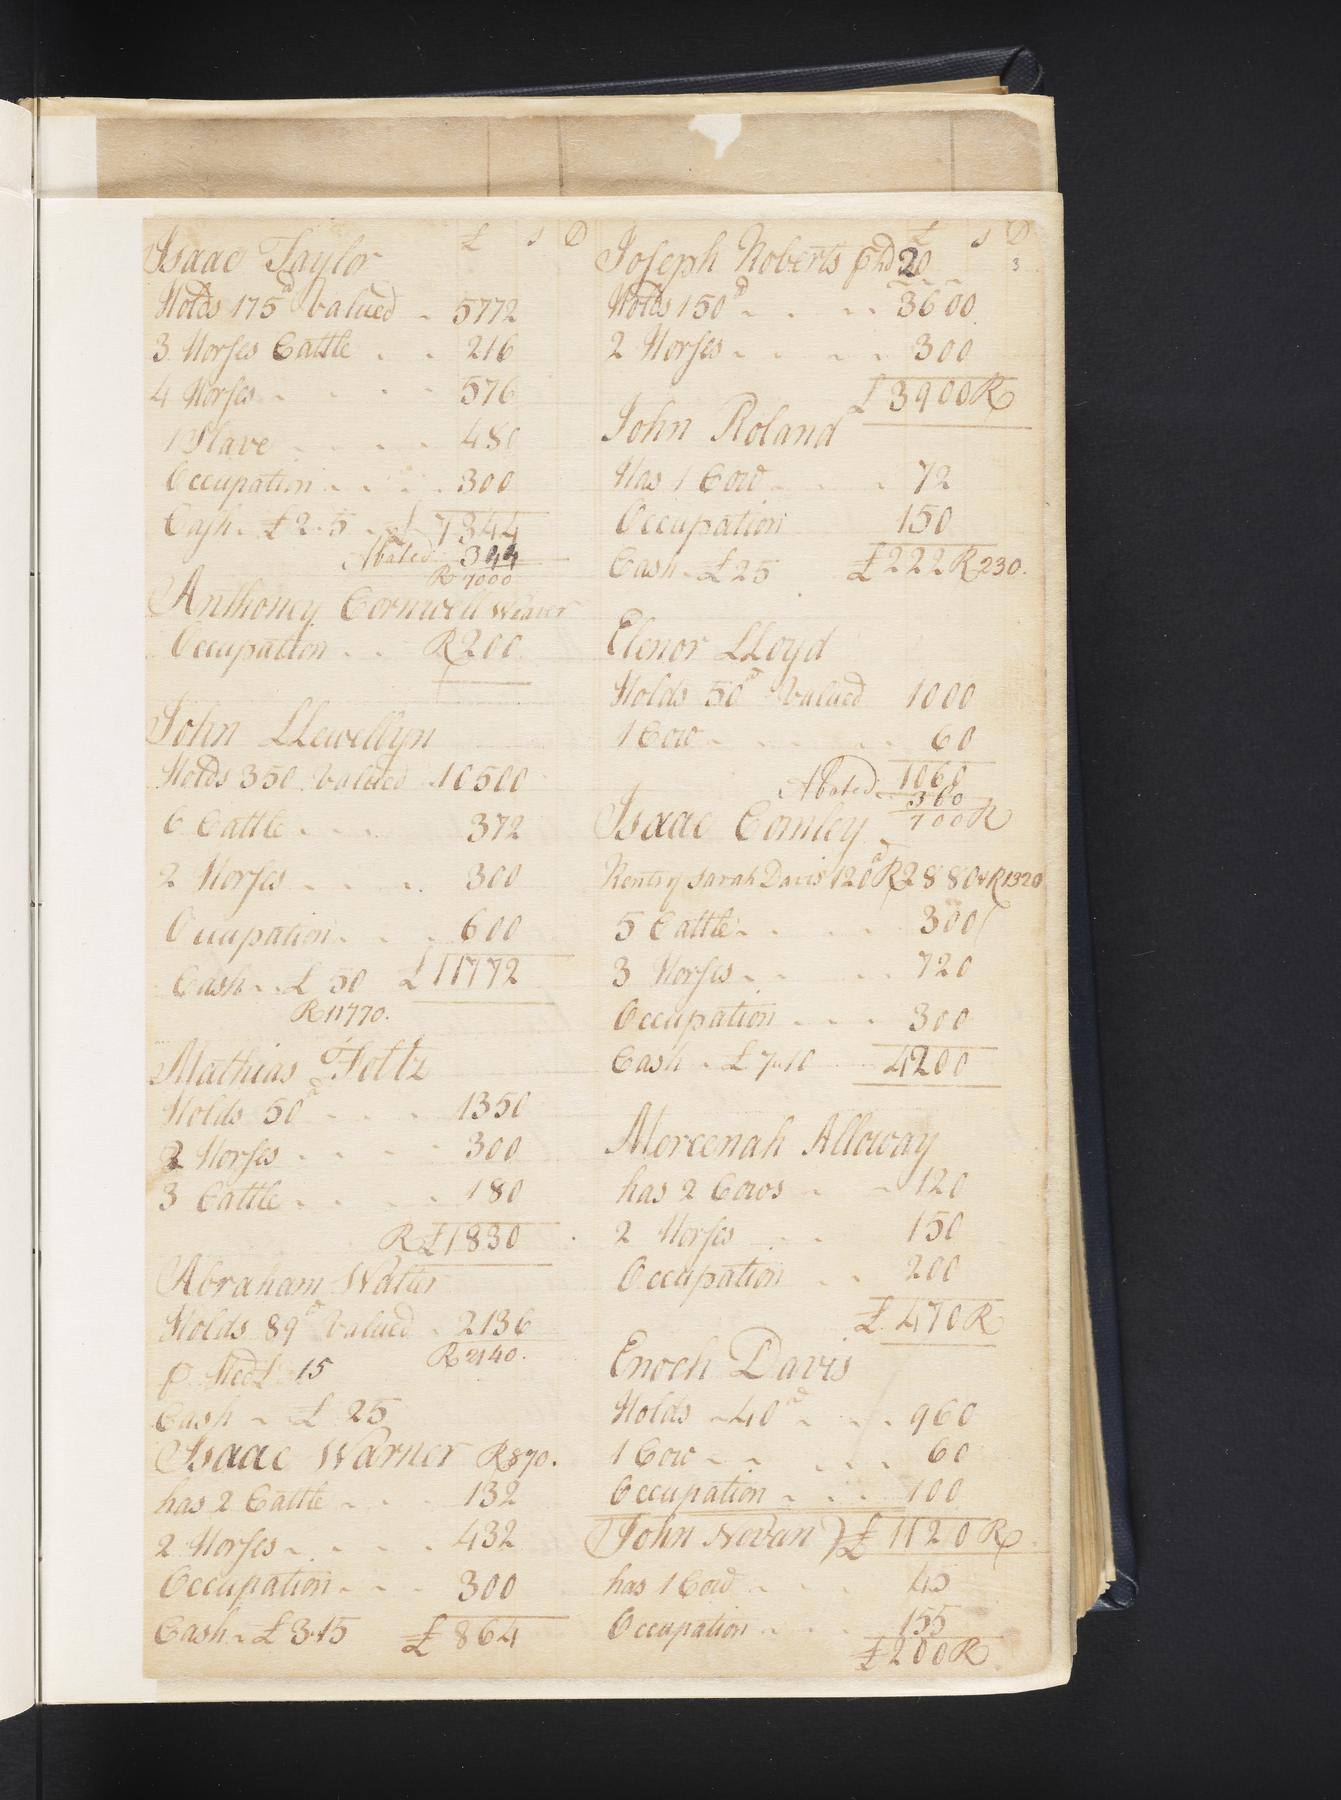 £ s D
Isaac Taylor
Holds 175ad Valued - 5772
3 Horses Cattle - - 216
4 Horses - - - - 576
1 Slave - - - - 480
Occupation - - - - 300
Cash - £2-5 - £ 7344
Abated 344
R 7000
Anthoney Cornwell Weaver
Occupation - - R200
John LLewellyn
Holds 350 Valued 10500
6 Cattle - - - 372
2 Horses - - - - 300
Occupation - - - - 600
Cash - - £ 50 £11772
R11770.
Mathias Foltz
Holds 50a - - - 1350
2 Horses - - - - 300
3 Cattle - - - - 180
R£1830
Abraham Walter
Holds 89ad Valued - 2136
R2140.
15
Cash - £ 25
Isaac Warner R870.
has 2 Cattle - - - 132
2 Horses - - - - 432
Occupation - - - 300
Cash - £3-15 £864
£ s D
Joseph Roberts 20
3
Holds 150ad - - - - 3600
2 Horses - - - - 300
£3900R
John Roland
Has 1 Cow - - - 72
Occupation 150
Cash - £25 £222R230.
Elenor LLoyd
Holds 50ad Valued 1000
1 Cow - - - - 60
1060
Abated - 360
700R
Isaac Comley
Rents of Sarah Davis 120a R2880 R1320
5 Cattle - - - - 300
3 Horses - - - - 720
Occupation - - - 300
Cash - £7-10 4200
Mercenah Alloway
has 2 Cows - - 120
2 Horses - - 150
Occupation - - 200
£470R
Enoch Davis
Holds - 40ad - - - 960
1 Cow - - - - - 60
Occupation - - - 100
£1120R
John Nevan
has 1 Cow - - - 45
Occupation - - - 155
£200R